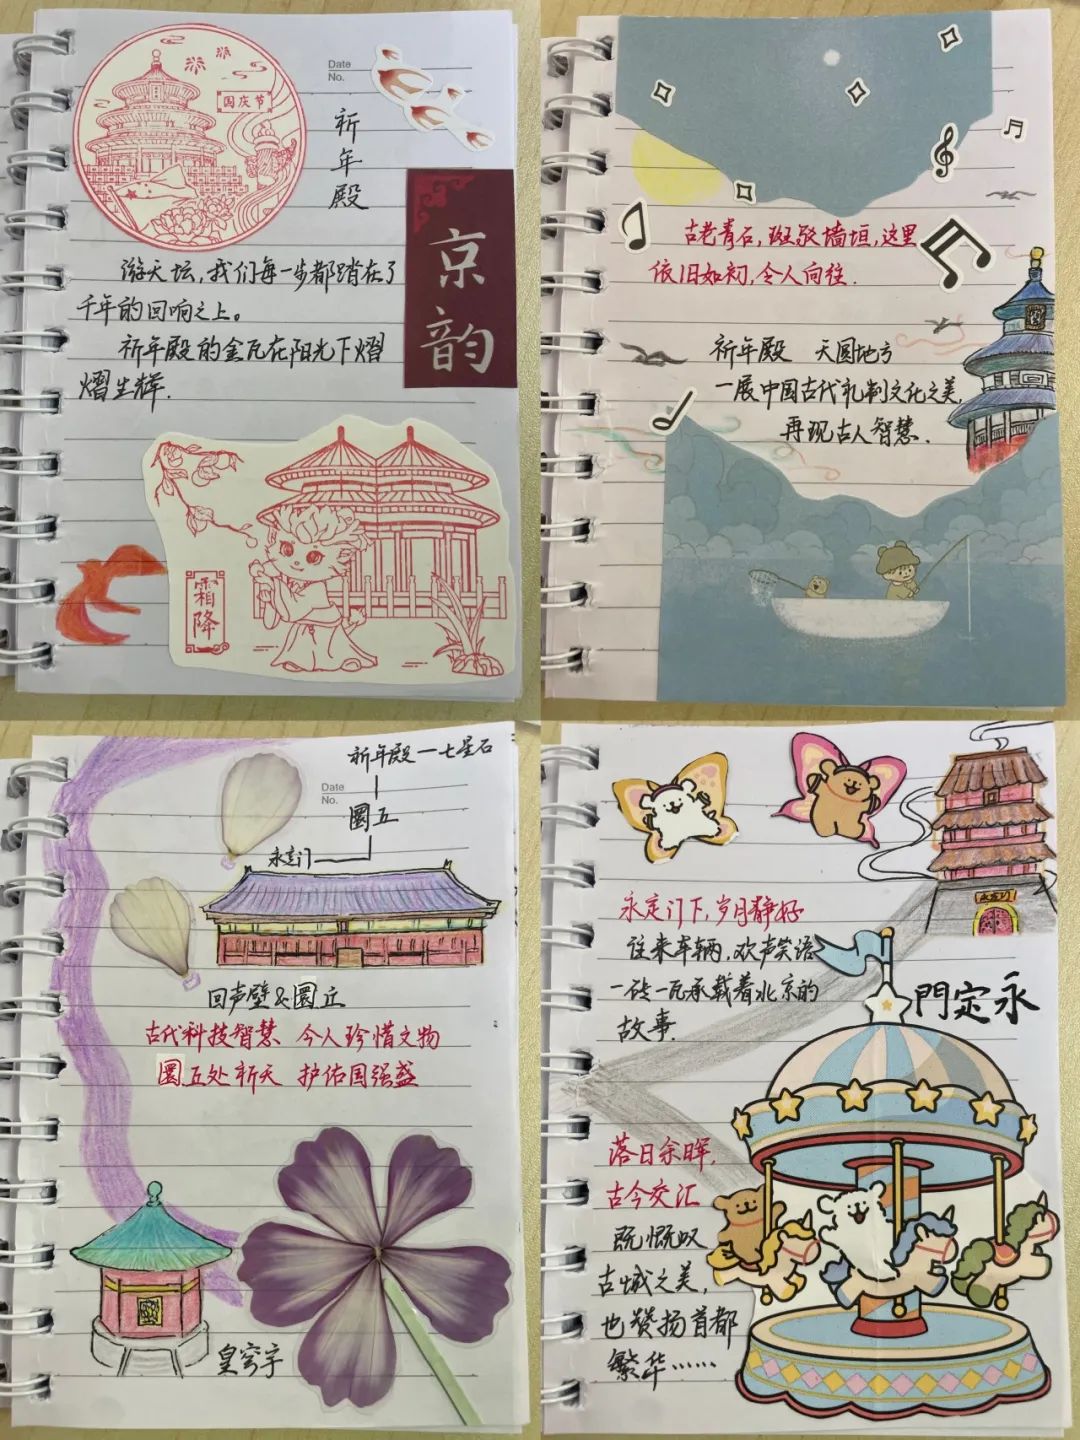 国庆节
Date
No.
祈年殿
京韵
游天坛,我们每一步都踏在了
千年的回响之上。
祈年殿的金瓦在阳光下熠
熠生辉.
霜降
古老青石,斑驳墙垣,这里
依旧如初,令人向往.
祈年殿 天圆地方
一展中国古代礼制文化之美,
再现古人智慧.
祈年殿一七星石
Date
No.
圜丘
永定门
回声壁&圜丘
古代科技智慧 今人珍惜文物
圜丘处祈天 护佑国强盛
皇穹宇
永定门
永定门下,岁月静好
往来车辆,欢声笑语
一砖一瓦承载着北京的
故事.
門定永
落日余晖,
古今交汇
既慨叹
古城之美,
也赞扬首都
繁华……